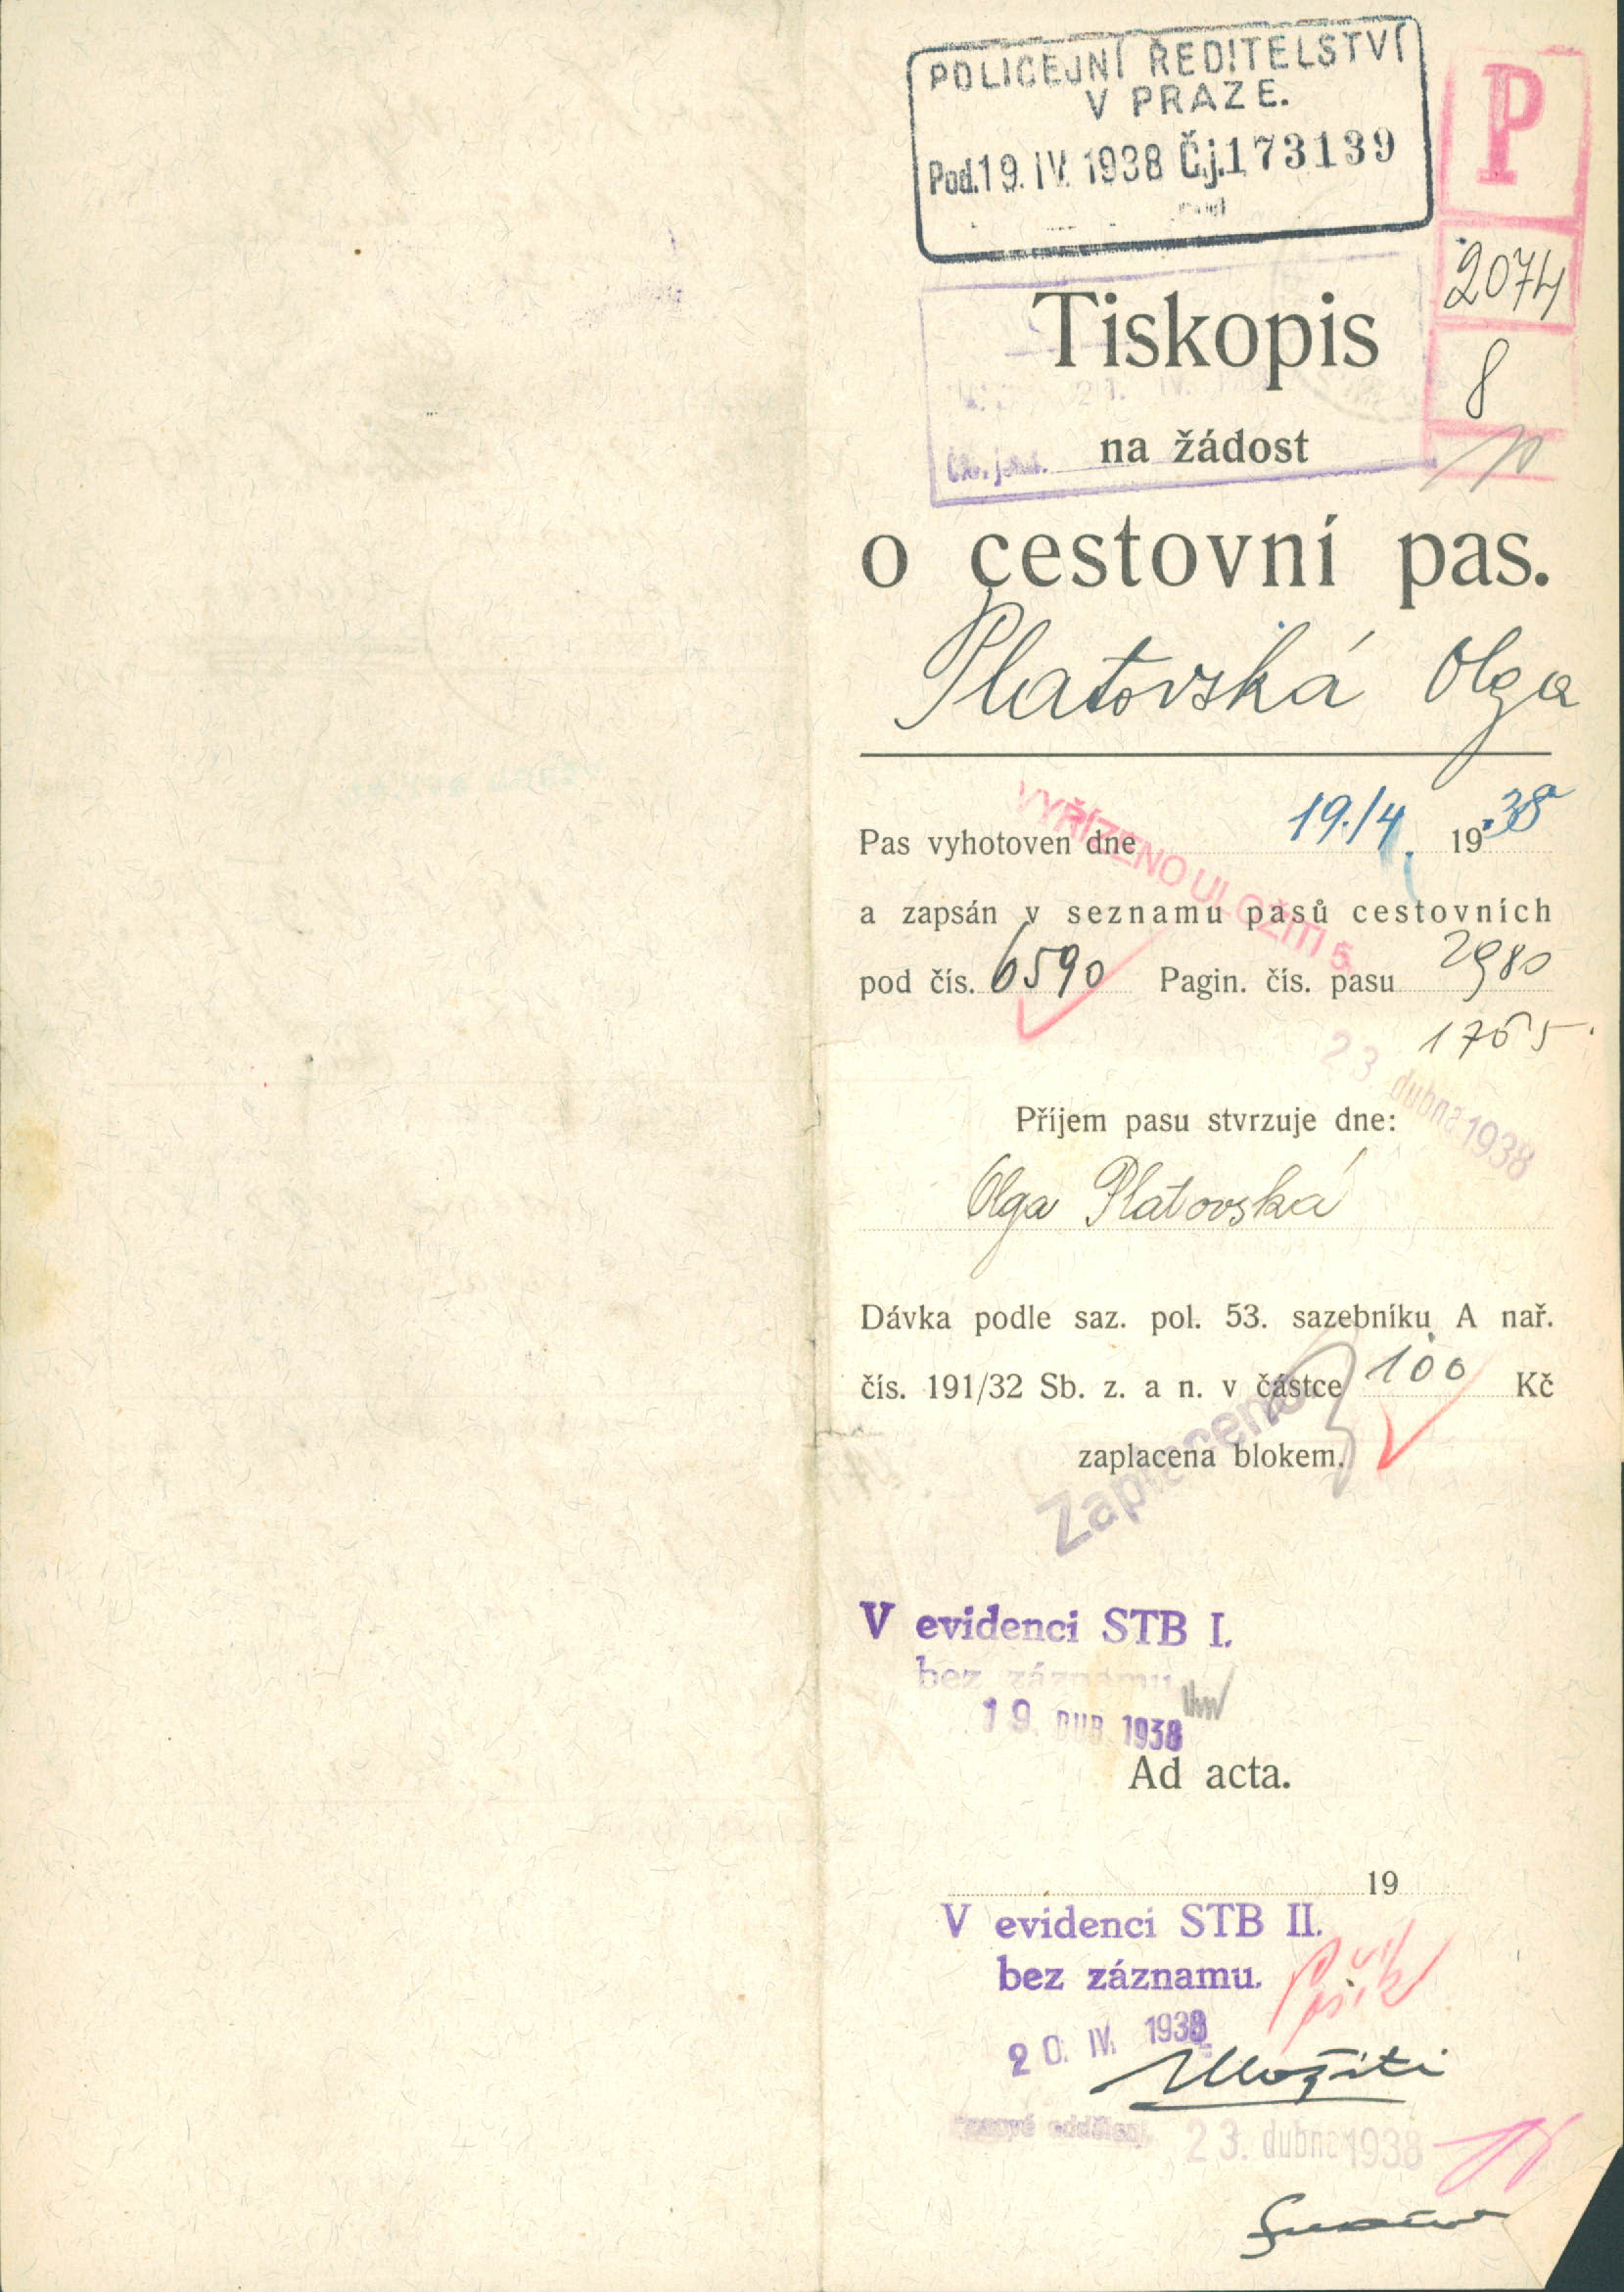 POLICEJNÍ ŘEDITELSTVÍ
V PRAZE.
Pod. 19. IV. 1938 Č.j. 173139
P
2074
8
Tiskopis
na žádost
o cestovní pas.
Platovská Olga
Pas vyhotoven dne 19./4. 1938
VYŘÍZENO ULOŽITI 5
a zapsán v seznamu pasů cestovních
pod čís. 6590 Pagin. čís. pasu 2980
1765
23. dubna 1938
Příjem pasu stvrzuje dne:
Olga Platovská
Dávka podle saz. pol. 53. sazebníku A nař.
čís. 191/32 Sb. z. a n. v částce 100 Kč
zaplacena blokem.
Zaplaceno
V evidenci STB I.
bez záznamu
19. DUB. 1938
Ad acta.
19
V evidenci STB II.
bez záznamu.
20. IV. 1938
Uložiti
oddělení 23. dubna 1938